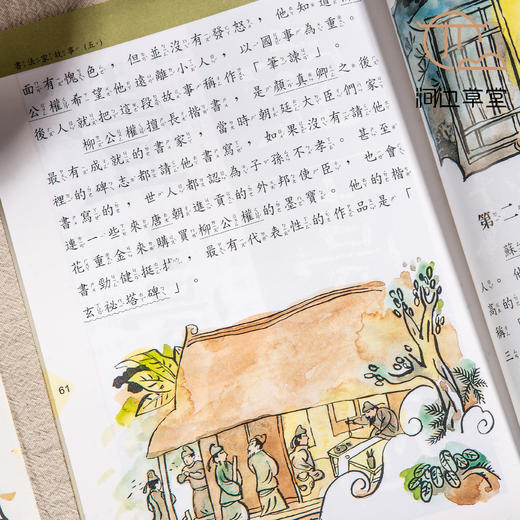 書法家故事（五）
面有愧色，但並沒有發怒，他知道
公權希望他遠離小人，以國事為重。
後人就把這段故事稱作「筆諫」。
柳公權擅長楷書，是顏真卿之後
最有成就的書家，當時朝廷大臣們家
裡的碑志都請他書寫，如果沒有請他
書寫的，世人都認為子孫不孝。甚至
連一些來唐朝進貢的外邦使臣，也會
花重金來購買柳公權的墨寶。他的楷
書勁健挺拔，最有代表性的作品是「
玄祕塔碑」。
61
第二
蘇
人。
高的
稱「
三
草堂